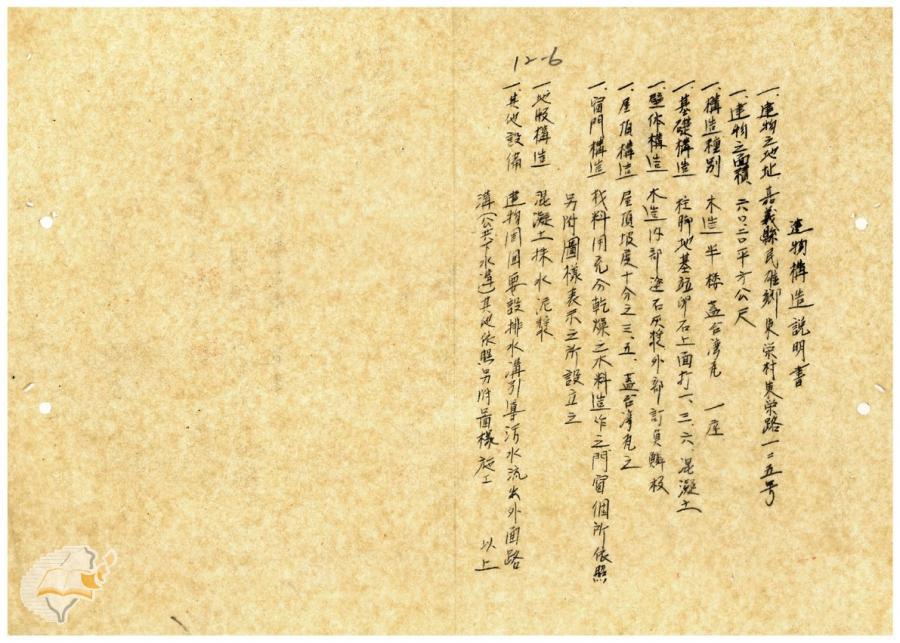 12-6
建物構造說明書
一、建物之地址 嘉義縣民雄鄉東榮村東榮路一二五号
一、建物之面積 六〇.二〇平方公尺
一、構造種別 木造半楼蓋台湾瓦 一座
一、基礎構造 柱脚地基 卵石上面打一、三、六、混凝土
一、壁体構造 木造内部塗石灰漿外部訂魚鱗板
一、屋頂構造 屋頂坡度十分之三.五、蓋台湾瓦之
一、窗門構造 材料用充分乾燥之木料造作之門窗個所依照
另附圖樣表示之所設立之
一、地板構造 混凝土抹水泥漿
一、其他設備 建物周囲要設排水溝引導污水流出外面路
溝(公共下水溝)其他依照另附圖樣施工 以上